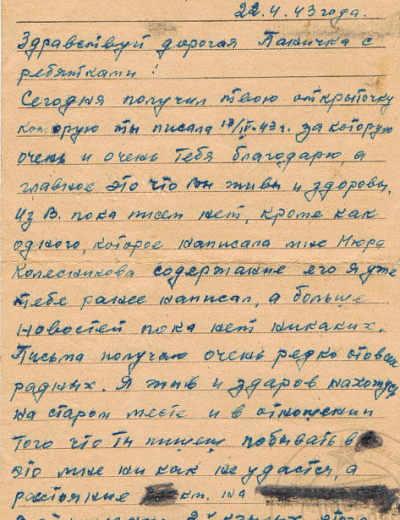 22.4.43 года.
Здравствуй дорогая Паничка с
ребятками!
Сегодня получил твою открыточку
которую ты писала 13/IV-43 г. за которую
очень и очень тебя благодарю, а
главное это что вы живы и здоровы.
Из В. пока писем нет, кроме как
одного, которое написала мне Нюра
Колесникова содержание его я уже
тебе ранее написал, а больше
новостей пока нет никаких.
Письма получаю очень редко от всех
радных. Я жив и здаров нахожусь
на старом месте и в отношении
того что ты пишеш побывать в
это мне ни как не удастся, а
растояние км. на